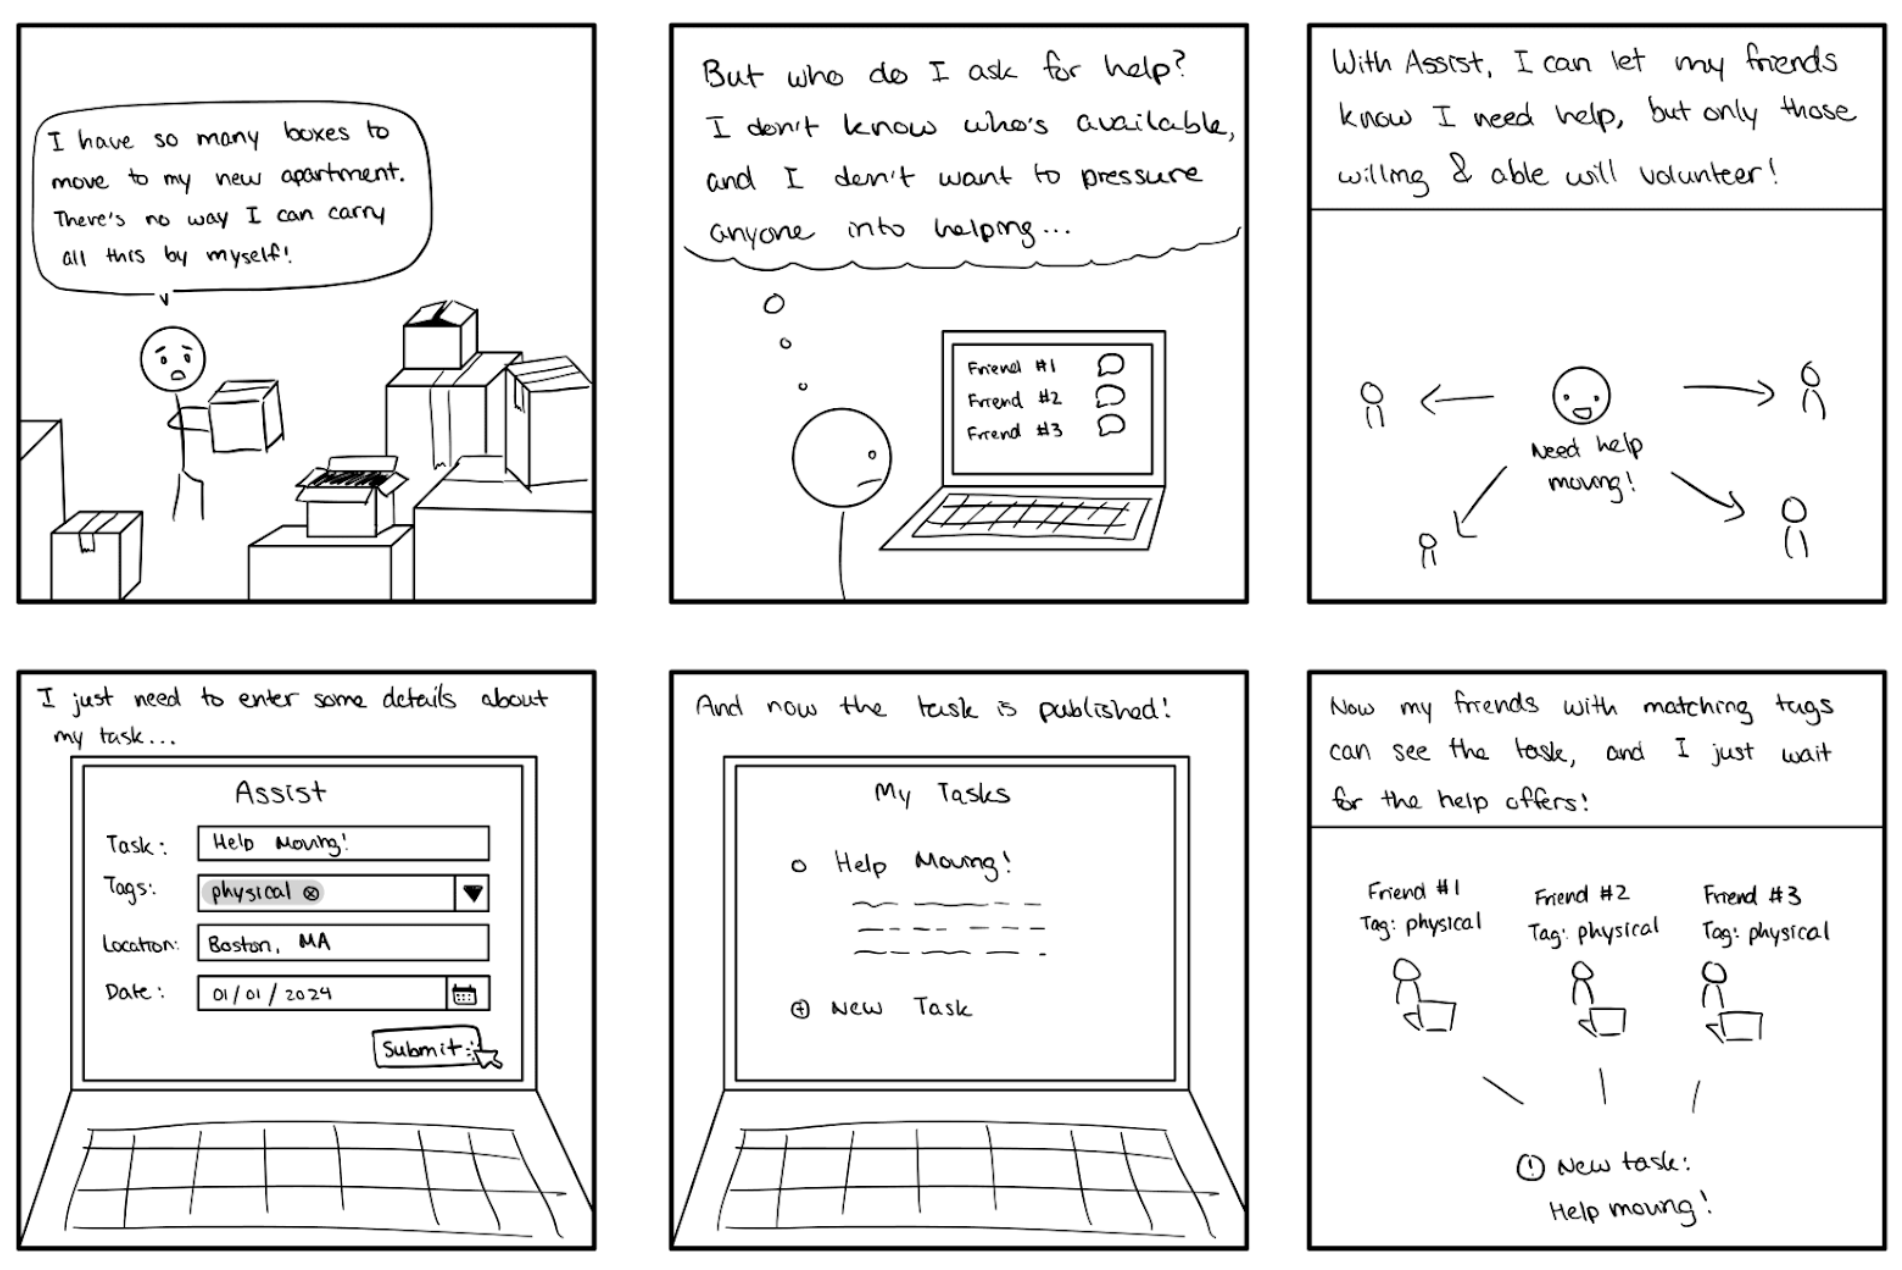 I have so many boxes to
move to my new apartment.
There's no way I can carry
all this by myself!
But who do I ask for help?
I don't know who's available,
and I don't want to pressure
anyone into helping...
Friend #1
Friend #2
Friend #3
With Assist, I can let my friends
know I need help, but only those
willing & able will volunteer!
Need help
moving!
I just need to enter some details about
my task...
Assist
Task: Help Moving!
Tags: physical ⊗
Location: Boston, MA
Date: 01/01/2024
Submit
And now the task is published!
My Tasks
Help Moving!
⊕ New Task
Now my friends with matching tags
can see the task, and I just wait
for the help offers!
Friend #1
Tag: physical
Friend #2
Tag: physical
Friend #3
Tag: physical
! New task:
Help moving!